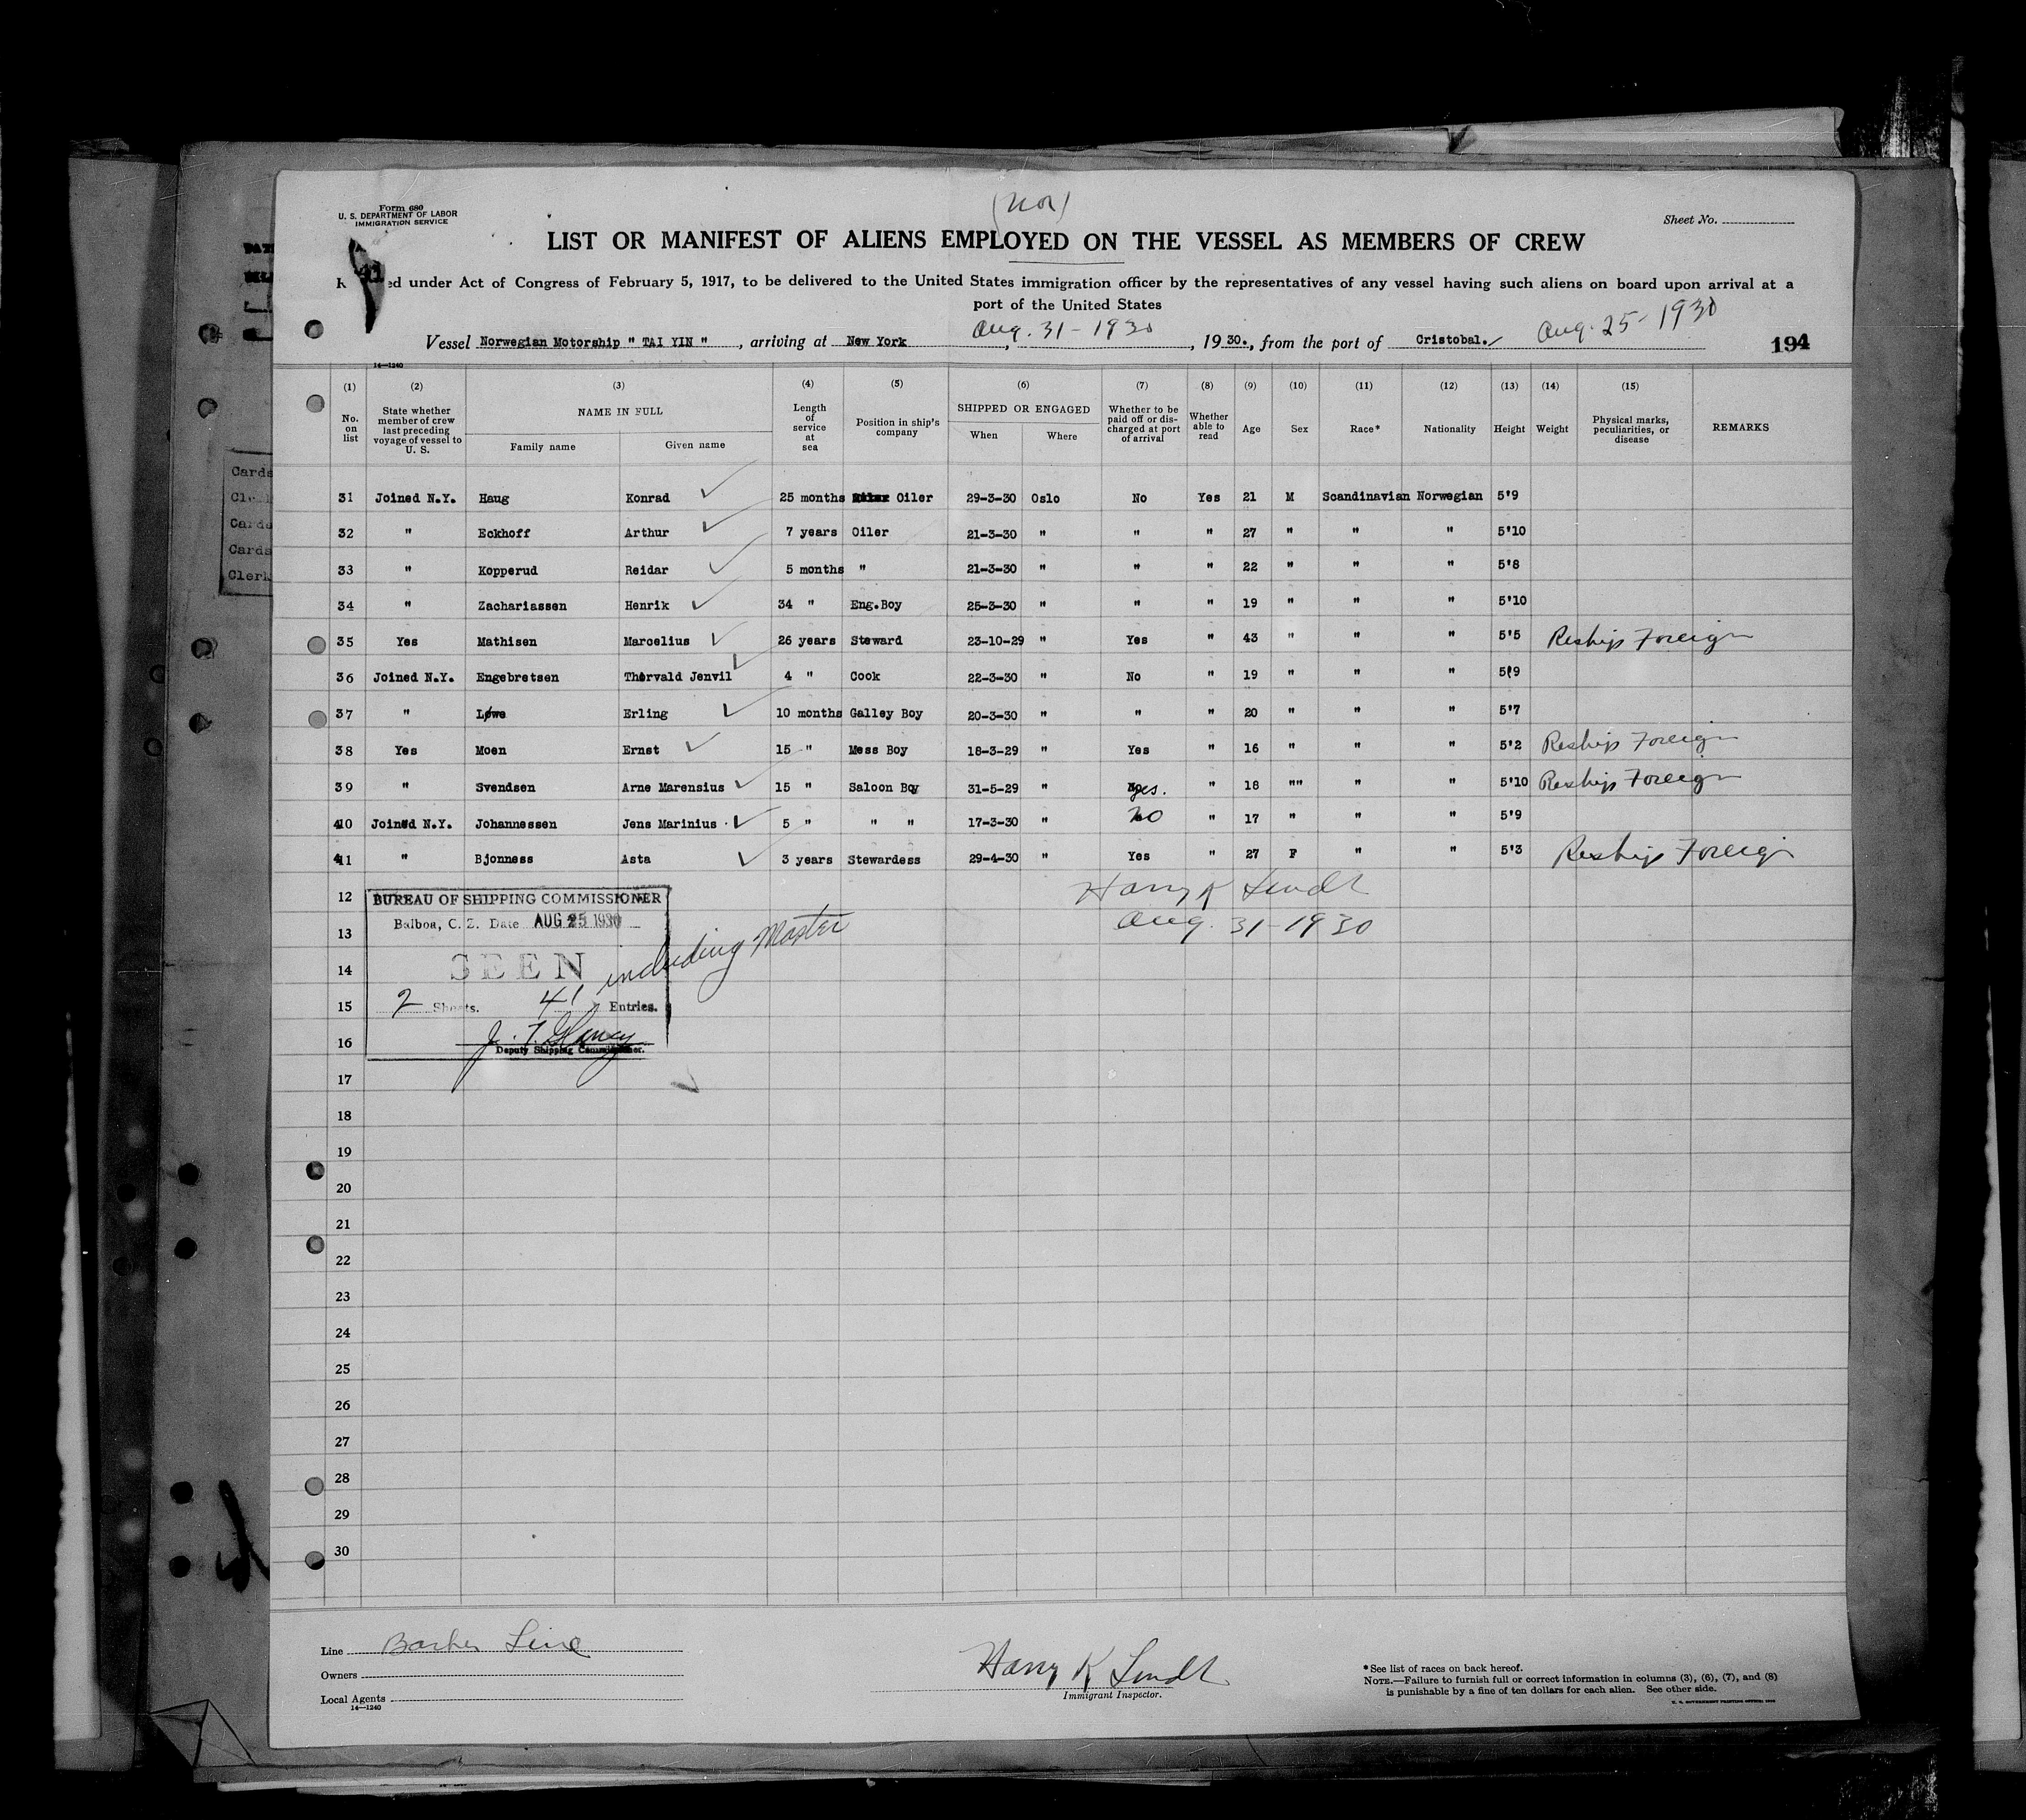 (Nor)
Form 680
U. S. DEPARTMENT OF LABOR
IMMIGRATION SERVICE
Sheet No.
LIST OR MANIFEST OF ALIENS EMPLOYED ON THE VESSEL AS MEMBERS OF CREW
ed under Act of Congress of February 5, 1917, to be delivered to the United States immigration officer by the representatives of any vessel having such aliens on board upon arrival at a
port of the United States
Vessel Norwegian Motorship " TAI YIN " , arriving at New York , Aug. 31 - 1930 , 19 30., from the port of Cristobal. Aug. 25 - 1930
194
14—1240
(1) (2) (3) (4) (5) (6) (7) (8) (9) (10) (11) (12) (13) (14) (15)
No. on list State whether member of crew last preceding voyage of vessel to U. S. NAME IN FULL Family name Given name Length of service at sea Position in ship's company SHIPPED OR ENGAGED When Where Whether to be paid off or discharged at port of arrival Whether able to read Age Sex Race* Nationality Height Weight Physical marks, peculiarities, or disease REMARKS
31 Joined N.Y. Haug Konrad 25 months Oiler 29-3-30 Oslo No Yes 21 M Scandinavian Norwegian 5'9
32 " Eckhoff Arthur 7 years Oiler 21-3-30 " " " 27 " " " 5'10
33 " Kopperud Reidar 5 months " 21-3-30 " " " 22 " " " 5'8
34 " Zachariassen Henrik 34 " Eng.Boy 25-3-30 " " " 19 " " " 5'10
35 Yes Mathisen Marcelius 26 years Steward 23-10-29 " Yes " 43 " " " 5'5 Reship Foreign
36 Joined N.Y. Engebretsen Thorvald Jenvil 4 " Cook 22-3-30 " No " 19 " " " 5'9
37 " Løwe Erling 10 months Galley Boy 20-3-30 " " " 20 " " " 5'7
38 Yes Moen Ernst 15 " Mess Boy 18-3-29 " Yes " 16 " " " 5'2 Reship Foreign
39 " Svendsen Arne Marensius 15 " Saloon Boy 31-5-29 " yes. " 18 "" " " 5'10 Reship Foreign
40 Joined N.Y. Johannessen Jens Marinius 5 " " " 17-3-30 " No " 17 " " " 5'9
41 " Bjonness Asta 3 years Stewardess 29-4-30 " Yes " 27 F " " 5'3 Reship Foreign
12
Harry K Lindt
Aug. 31-1930
13
14
15
16
17
18
19
20
21
22
23
24
25
26
27
28
29
30
BUREAU OF SHIPPING COMMISSIONER
Balboa, C. Z. Date AUG 25 1930
SEEN
including Master
2 Sheets. 41 Entries.
Deputy Shipping Commissioner.
Line Barber Line
Owners
Local Agents
14—1240
Harry K Lindt
Immigrant Inspector.
*See list of races on back hereof.
NOTE.—Failure to furnish full or correct information in columns (3), (6), (7), and (8)
is punishable by a fine of ten dollars for each alien. See other side.
Cards
Cards
Cards
Clerk